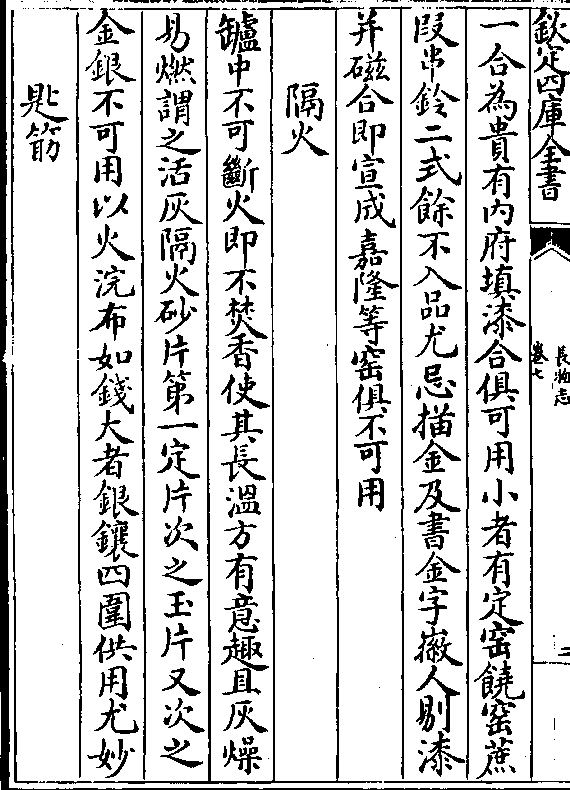 欽定四庫全書
長物志
卷七
二
一合為貴有内府填漆合俱可用小者有定窑饒窑蔗
叚串鈴二式餘不入品尤忌描金及書金字徽人剔漆
并磁合即宣成嘉隆等窑俱不可用
隔火
鑪中不可斷火即不焚香使其長溫方有意趣且灰燥
易燃謂之活灰隔火砂片第一定片次之玉片又次之
金銀不可用以火浣布如錢大者銀鑲四圍供用尤妙
匙筯